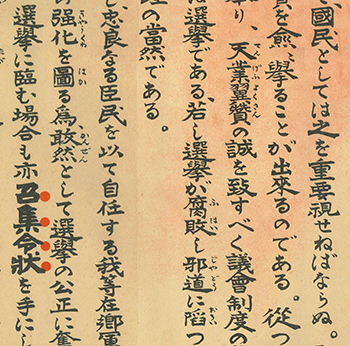 、國民としては之を重要視せねばならぬ。
賢を僉、擧ることが出來るのである。從つ
り、天業翼賛の誠を致すべく議會制度の
は選擧である、若し選擧が腐敗し邪道に陷つ
理の當然である。
し、忠良なる臣民を以て自任する我等在鄕軍
の強化を圖る為敢然として選擧の公正に奮
選擧に臨む場合も亦召集令狀を手にし